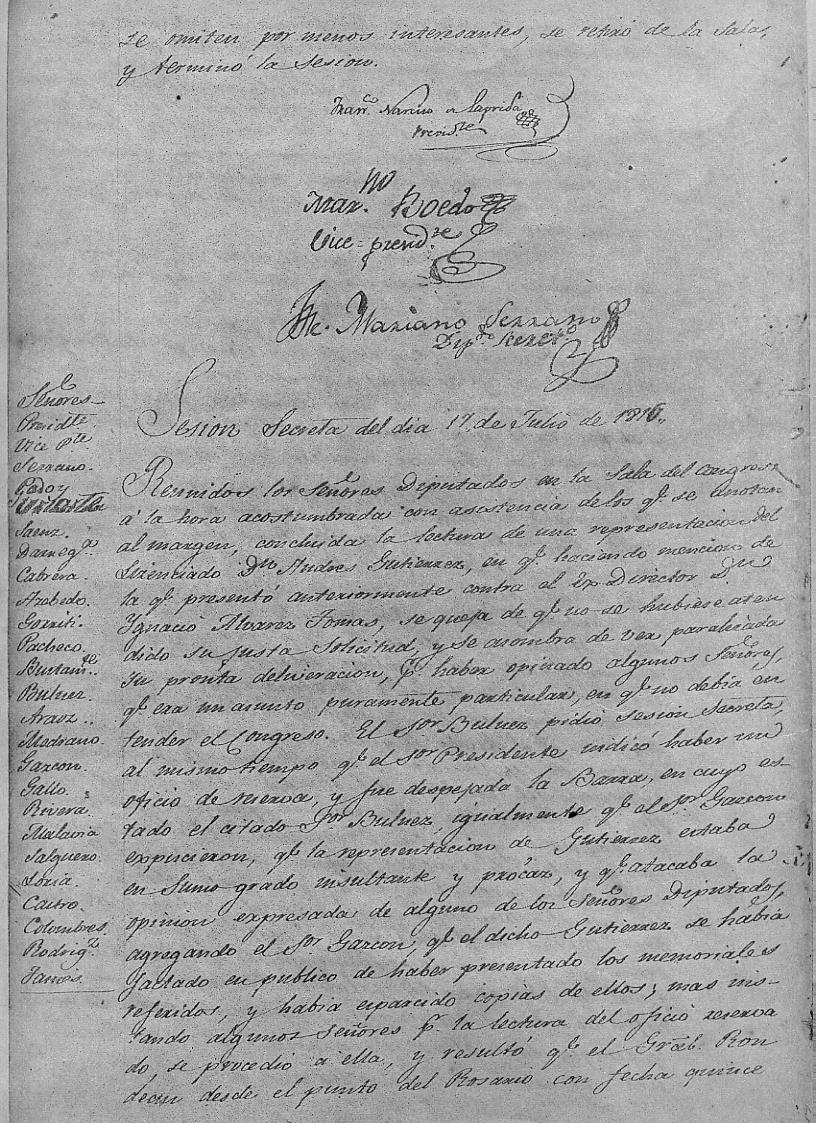 se omiten por menos interesantes, se retiró de la Sala,
y terminó la Sesion.
Fran.co Narciso de Laprida
Presid.te
Mar.no Boedo
Vice-presid.te
Je. Mariano Serrano
Dip.do Secret.o
Sesion Secreta del dia 17, de Julio de 1816,,
Señores
Presid.te
Vice P.te
Serrano.
Godoy
Saenz.
Darreg.a
Cabrera.
Azebedo.
Gorriti.
Pacheco.
Bustam.te
Bulnez.
Araoz..
Medrano.
Garzon.
Gallo.
Rivera.
Malavia
Salguero.
Loria.
Castro.
Colombres.
Rodrig.z
Reunidos los Señores Diputados en la Sala del Congreso
á la hora acostumbrada con asistencia de los q.e se anotan
al margen, concluida la lectura de una representacion del
Licenciado D.n Andres Gutierrez, en q.e haciendo mencion de
la q.e presentó anteriormente contra el Ex-Director D.n
Ygnacio Alvarez Tomas, se queja de q.e no se hubiese aten
dido su justa Solicitud, y se asombra de ver paralizada
su pronta deliveracion, p.r haber opinado algunos Señores,
q.e era un asunto puramente particular, en q.e no debia en
tender el Congreso. El S.or Bulnez pidió sesion Secreta,
al mismo tiempo q.e el S.or Presidente indicó haber un
oficio de reserva, y fue despejada la Barra, en cuyo es
tado el citado S.or Bulnez, igualmente q.e el S.or Garzon
expucieron, q.e la representacion de Gutierrez estaba
en Sumo grado insultante y procaz, y q.e atacaba la
opinion expresada de alguno de los Señores Diputados,
agregando el S.or Garzon, q.e el dicho Gutierrez se habia
jactado en publico de haber presentado los memoriales
referidos, y habia esparcido copias de ellos; mas ins-
tando algunos Señores p.r la lectura del oficio reserva
do, se procedio a ella, y resultó q.e el Gral. Ron
deau desde el punto del Rosario con fecha quince